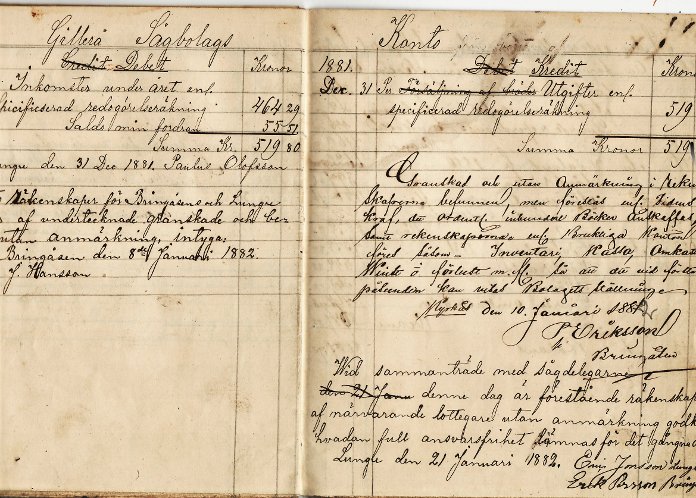 Gillerå Sågbolags
Credit Debet Kronor
Inkomster under året enl.
specificserad redogörelseräkning 464 29
Saldo min fordran 55 51
Summa Kr. 519 80
Lungre den 31 Dec 1881. Paulus Olofsson
räkenskaper för Bringåsen och Lungre
af undertecknad granskade och bef
utan anmärkning, intyga,
Bringåsen den 8de Januari 1882.
J. Hansson
Konto
1881. Debet Kredit Kron
Dec. 31 Per Försäljning af Utgifter enl.
specificerad redogörelseräkning 519
Summa Kronor 519
Granskad och utan Anmärkning i Räken
skaperna befunnen, men föreslås enl.
Böcker Anskaffas
samt rekenskaperna enl. Brukliga
föres såsom Inventari, Kassa, Omkost
Winst & förlust m.fl. så att du vid
påseenden kan vital Bolagets ställning
den 10. Januari 1882
P Eriksson
Bringåsen
Wid sammanträde med sågdelegarne
den 21 Janu denne dag är förestående räkenskap
af närvarande lottegare utan anmärkning godk
hvadan full ansvarsfrihet lämnas för det gångna
Lungre den 21 Januari 1882. Jonsson Lungre
Erik Persson Bring